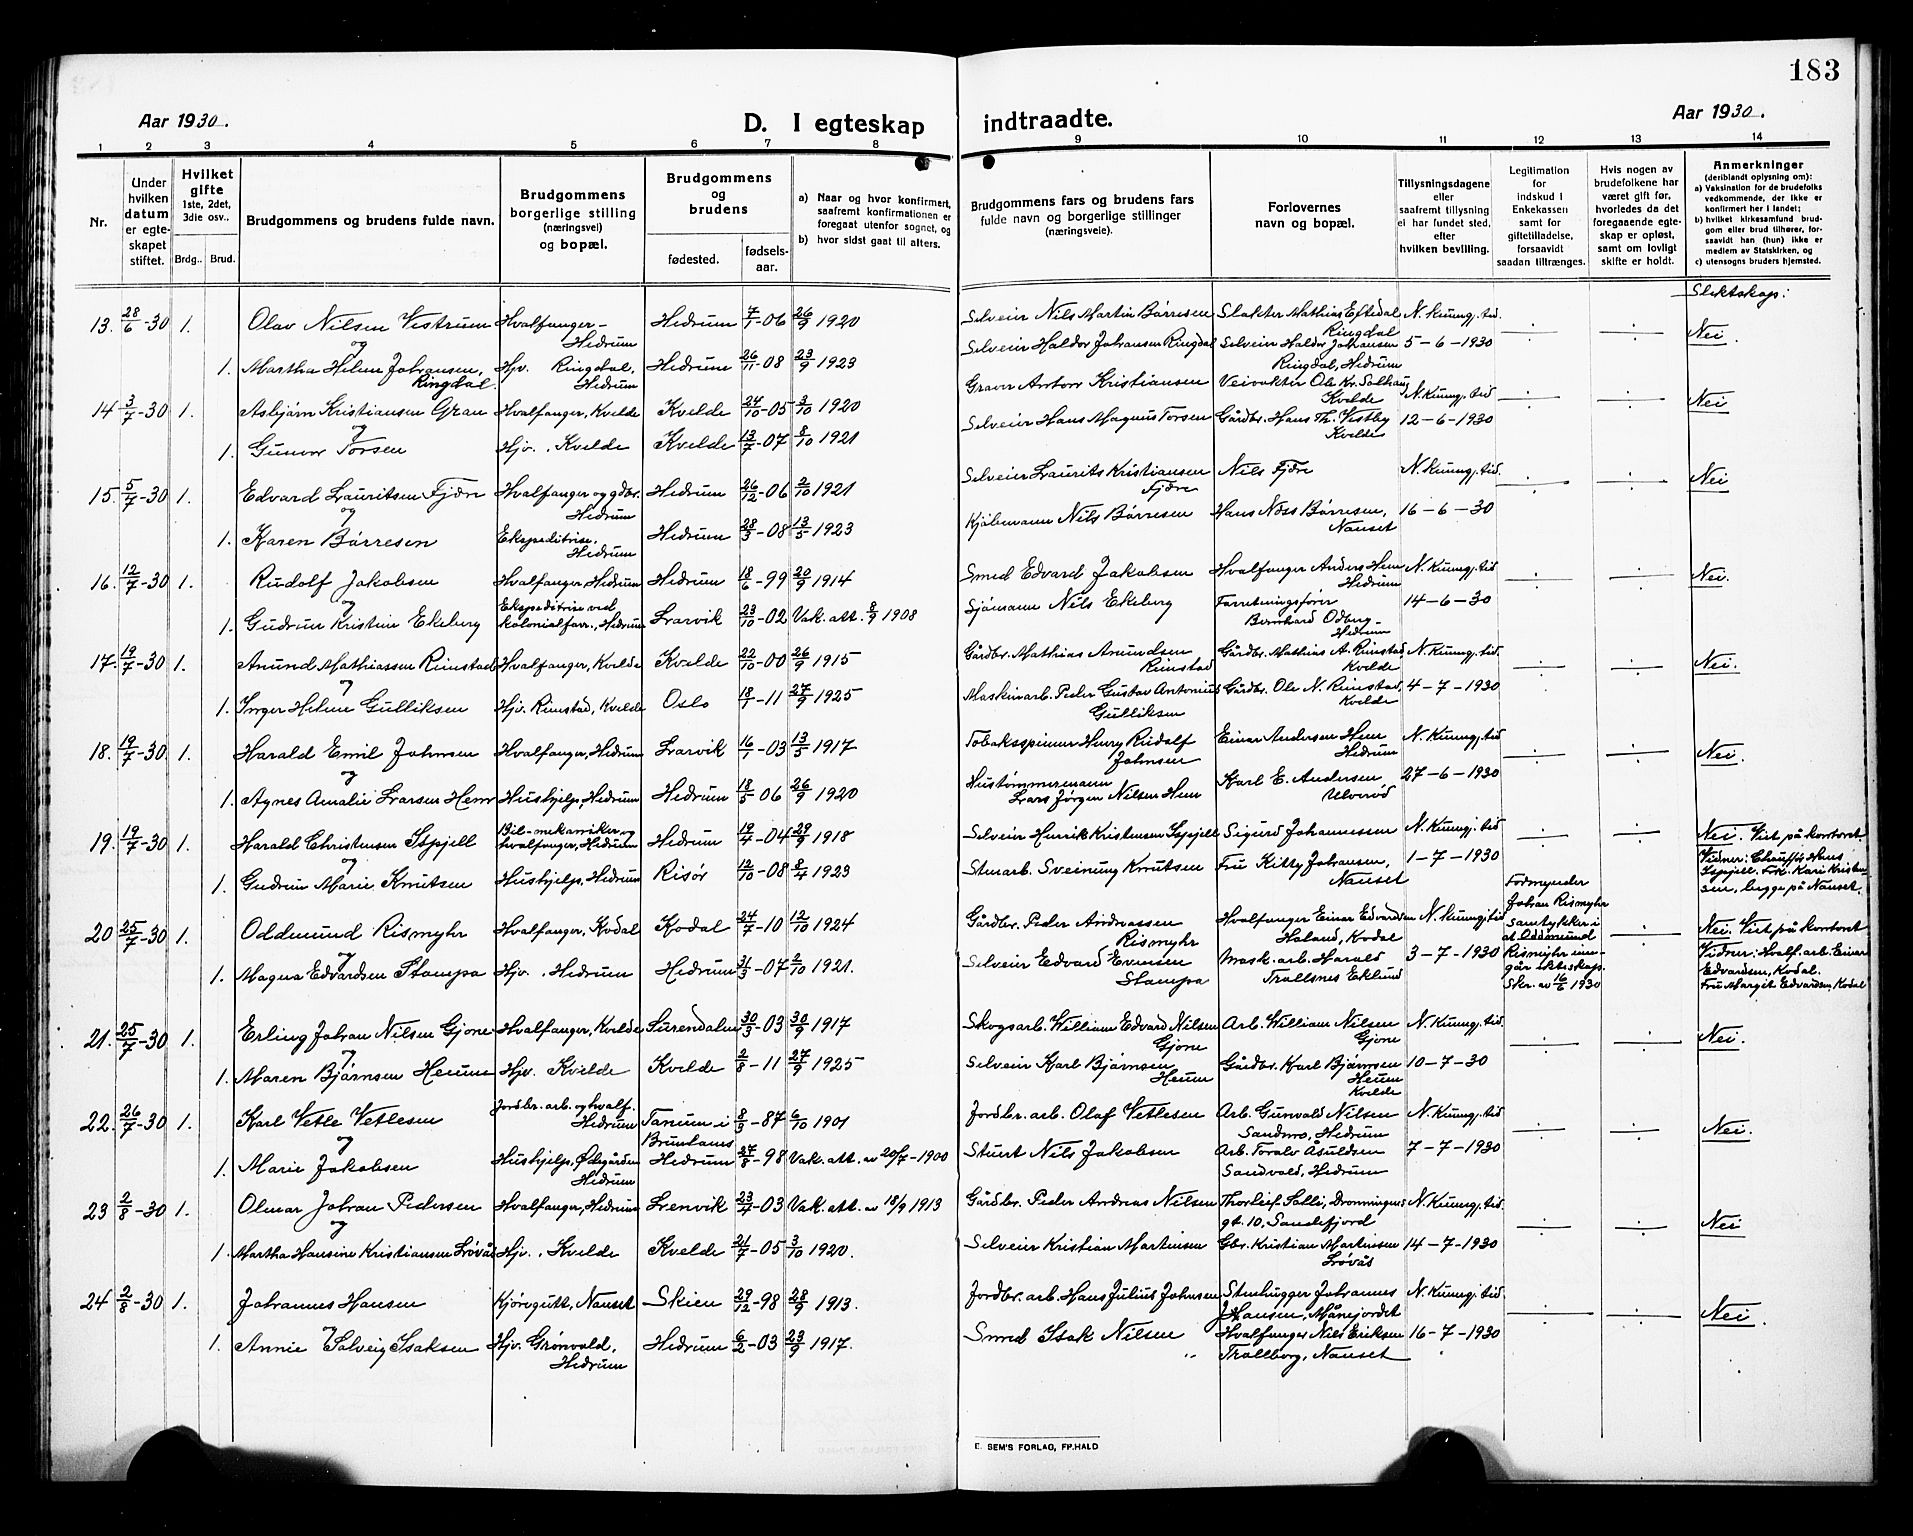 183
Aar 1930.
D. I egteskap
indtraadte.
Aar 1930.
1 2 3 4 5 6 7 8
9 10 11 12 13 14
Nr.
Under hvilken datum er egteskapet stiftet.
Hvilket gifte 1ste, 2det, 3die osv..
Brdg.. Brud.
Brudgommens og brudens fulde navn.
Brudgommens borgerlige stilling (næringsvei) og bopæl.
Brudgommens og brudens
fødested.
fødselsaar.
a) Naar og hvor konfirmert, saafremt konfirmationen er foregaat utenfor sognet, og
b) hvor sidst gaat til alters.
Brudgommens fars og brudens fars fulde navn og borgerlige stillinger (næringsveie).
Forlovernes navn og bopæl.
Tillysningsdagene eller saafremt tillysning ei har fundet sted, efter hvilken bevilling.
Legitimation for indskud i Enkekassen samt for giftetilladelse, forsaavidt saadan tiltrænges.
Hvis nogen av brudefolkene har været gift før, hvorledes da det foregaaende egteskap er opløst, samt om lovligt skifte er holdt.
Anmerkninger (deriblandt oplysning om):
a) Vaksination for de brudefolks vedkommende, der ikke er konfirmert her i landet;
b) hvilket kirkesamfund brudgom eller brud tilhører, forsaavidt han (hun) ikke er medlem av Statskirken, og
c) utensogns bruders hjemsted.
Slektskap:
13. 28/6-30 1. Olav Nilsen Vestrum Hvalfanger - Hedrum Hedrum 7/1-06 26/9 1920 Selveier Nils Martin Børresen Slakter Mathias Eftedal Ringdal N. Kunngj. tid Nei.
og
1. Martha Helene Johansen, Ringdal. Hjv. Ringdal, Hedrum Hedrum 26/11-08 23/9 1923 Selveier Haldor Johansen Ringdal Selveier Haldor Johansen Ringdal, Hedrum 5-6-1930
14 3/7-30 1. Asbjørn Kristiansen Gran Hvalfanger, Kvelde Kvelde 24/10-05 3/10 1920 Graver Anton Kristiansen Veivokter Ole Kr. Solhaug Kvelde N. Kunngj. tid Nei
og
1. Gunvor Torsen Hjv. Kvelde Kvelde 13/7-07 8/10 1921 Selveier Hans Magnus Torsen Gårdbr. Hans Th. Vestby Kvelde 12-6-1930
15. 5/7-30 1. Edvard Lauritsen Fjære Hvalfanger og gdbr. Hedrum Hedrum 26/12-06 2/10 1921 Selveier Laurits Kristiansen Fjære Nils Fjære N. Kunngj. tid Nei
og
1. Karen Børresen Ekspeditrise. Hedrum Hedrum 28/3-08 13/5 1923 Kjøbmann Nils Børresen Hans Næss Børresen, Nanset 16-6-30
16. 12/7-30 1. Rudolf Jakobsen Hvalfanger, Hedrum Hedrum 18/6-99 20/9 1914 Smed Edvard Jakobsen Hvalfanger Anders Hem Hedrum N. Kunngj. tid Nei.
og
1. Gudrun Kristine Ekeberg Ekspeditrise ved kolonialforr., Hedrum Larvik 23/10-02 Vak. att. 8/9 1908 Sjømann Nils Ekeberg Forretningsfører Bernhard Odberg - Hedrum 14-6-30
17. 19/7-30 1. Anund Mathiassen Rimstad Hvalfanger, Kvelde Kvelde 22/10-00 26/9 1915 Gårdbr. Mathias Anundsen Rimstad Gårdbr. Mathias A. Rimstad, Kvelde N. Kunngj. tid Nei.
og
1. Inger Helene Gulliksen Hjv. Rimstad, Kvelde Oslo 18/1-11 27/9 1925 Maskinarb. Peder Gustav Antonius Gulliksen Gårdbr. Ole N. Rimstad, Kvelde 4-7-1930
18. 19/7-30 1. Harald Emil Johnsen Hvalfanger, Hedrum Larvik 16/1-03 13/5 1917 Tobaksspinner Henry Rudolf Johnsen Einar Andersen Hem Hedrum N. Kunngj. tid Nei.
og
1. Agnes Amalie Larsen Hem Hushjelp, Hedrum Hedrum 18/5 06 26/9 1920 Hustømmermann Lars Jørgen Nilsen Hem Karl E. Andersen Ulverød 27-6-1930
19. 19/7-30 1. Harald Christensen Ispjell Bil-mekaniker og hvalfanger, Hedrum Hedrum 19/4-04 29/9 1918 Selveier Henrik Kristensen Ispjell Sigurd Johannessen N. Kunngj. tid Nei. Viet på kontoret.
og
1. Gudrun Marie Knutsen Hushjelp, Hedrum Risør 12/10-08 8/4 1923 Stenarb. Sveinung Knutsen Fru Kitty Johansen, Nanset 1-7-1930 Vidner: Chauffør Hans Ispjell. Frk. Kari Kristensen, begge på Nanset.
20 25/7-30 1. Oddmund Rismyhr Hvalfanger, Kodal Kodal 24/7-10 12/10 1924 Gårdbr. Peder Andreassen Rismyhr Hvalfanger Einar Edvardsen Haland, Kodal N. Kunngj. tid Formynder Johan Rismyhr samtykker i at Oddmund Rismyhr inngår ekteskap. Skr. av 16/6 1930 Nei. Viet på kontoret
og
1. Magna Edvardsen Stampa Hjv. Hedrum Hedrum 31/3-07 2/10 1921. Selveier Edvard Evensen Stampa Mask. arb. Harald Trollsnes Eklund 3-7-1930 Vidner: Hvalf. arb. Einar Edvardsen, Kodal. Fru Margit Edvardsen, Kodal
21. 25/7-30 1. Erling Johan Nilsen Gjone Hvalfanger, Kvelde Surendalen 30/3-03 30/9 1917 Skogsarb. William Edvard Nilsen Gjone Arb. William Nilsen Gjone N. Kunngj. tid. Nei.
og
1. Maren Bjørnsen Heum Hjv. Kvelde Kvelde 2/8-11 27/9 1925 Selveier Karl Bjørnsen Heum Gårdbr. Karl Bjørnsen Heum Kvelde 10-7-30
22. 26/7-30 1. Karl Vetle Vetlesen Jordbr. arb. og hvalf. Hedrum Tanum i Brunlanes 8/3-87 6/10 1901 Jordbr. arb. Olaf Vetlesen Arb. Gunvald Nilsen Sandmo, Hedrum N. Kunngj. tid Nei.
og
1. Marie Jakobsen Hushjelp, Ødegården Hedrum Hedrum 27/8-98 Vak. att. av 20/7-1900 Stuert Nils Jakobsen Arb. Toralv Åsuldsen Sandvold, Hedrum 7-7-1930
23 2/8-30 1. Olmar Johan Pedersen Hvalfanger, Hedrum Lenvik 23/4-03 Vak. att. av 18/9 1913 Gårdbr. Peder Andreas Nilsen Thorleif Salli, Dronningens gt. 10, Sandefjord N. Kunngj. tid. Nei
og
1. Martha Hansine Kristiansen Løvås Hjv. Kvelde Kvelde 21/7-05 3/10 1920. Selveier Kristian Martinsen Gbr. Kristian Martinsen Løvås 14-7-1930
24 2/8-30 1. Johannes Hansen Kjøregutt, Nanset Skien 29/12-98 28/9 1913. Jordbr. arb. Hans Julius Johnsen Stenhugger Johannes J Hansen, Månejordet N. Kunngj. tid Nei.
og
1. Annie Solveig Isaksen Hjv. Grønvold, Hedrum Hedrum 6/2-03 23/9 1917. Smed Isak Nilsen Hvalfanger Nils Eriksen Trollborg, Nanset 16-7-1930
E. SEM'S FORLAG, FR.HALD